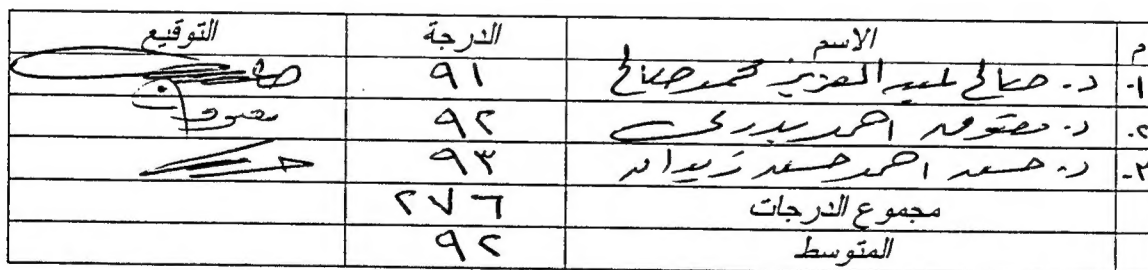 م الاسم الدرجة التوقيع
١- د. صالح عبد العزيز محمد صالح ٩١
٢- د. معتوق احمد بدري ٩٢ معتوق
٣- د. حسن احمد حسن زيدان ٩٣
مجموع الدرجات ٢٧٦
المتوسط ٩٢